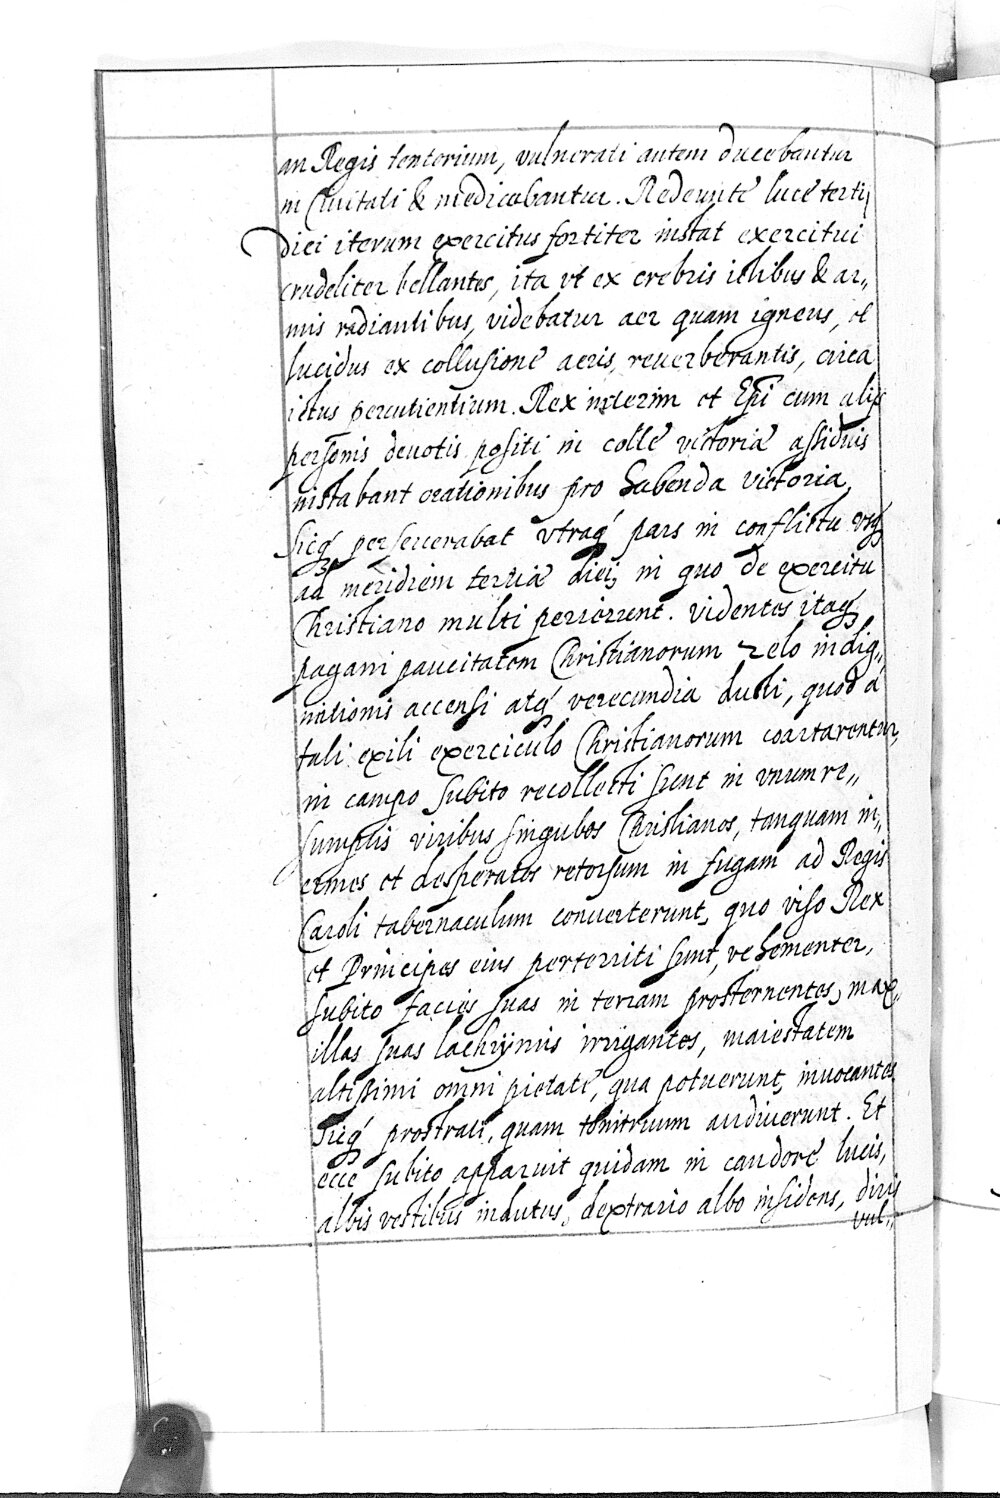 an Regis tentorium, vulnerati autem ducebantur
in Civitati & medicabantur. Redeunte luce tertij
diei iterum exercitus fortiter instat exercitui
crudeliter bellantes, ita vt ex crebris ictibus & ar„
mis radiantibus, videbatur aer quam igneus, et
lucidus ex collusione aeris, reuerberantis, circa
ictus percutientium. Rex interim et Epi cum alijs
personis deuotis positi in colle victoriæ assiduis
instabant orationibus pro habenda victoria,
sicq́ perseuerabat vtraq́ pars in conflictu vsq́
ad meridiem tertiæ diei, in quo de exercitu
Christiano multi perierunt. Videntes itaq́
pagani paucitatem Christianorum zelo indig„
nationis accensi atq́ verecundia ducti, quod á
tali exili exerciculo Christianorum coartarentur,
in campo subito recollecti sunt in vnum re„
sumptis viribus singulos Christianos, tanquam in„
ermes et desperatos retorsum in fugam ad Regis
Caroli tabernaculum conuerterunt, quo viso Rex
et Principes eius perterriti sunt, vehementer,
subito facies suas in terram prosternentes, max„
illas suas lachrÿmis irrigantes, maiestatem
altissimi omni pietate, qua potuerunt, inuocantes
sicq́ prostrati, quam tonitruum audiuerunt. Et
ecce subito apparuit quidam in candore lucis,
albis vestibus indutus, dextrario albo insidens, diris
vul„